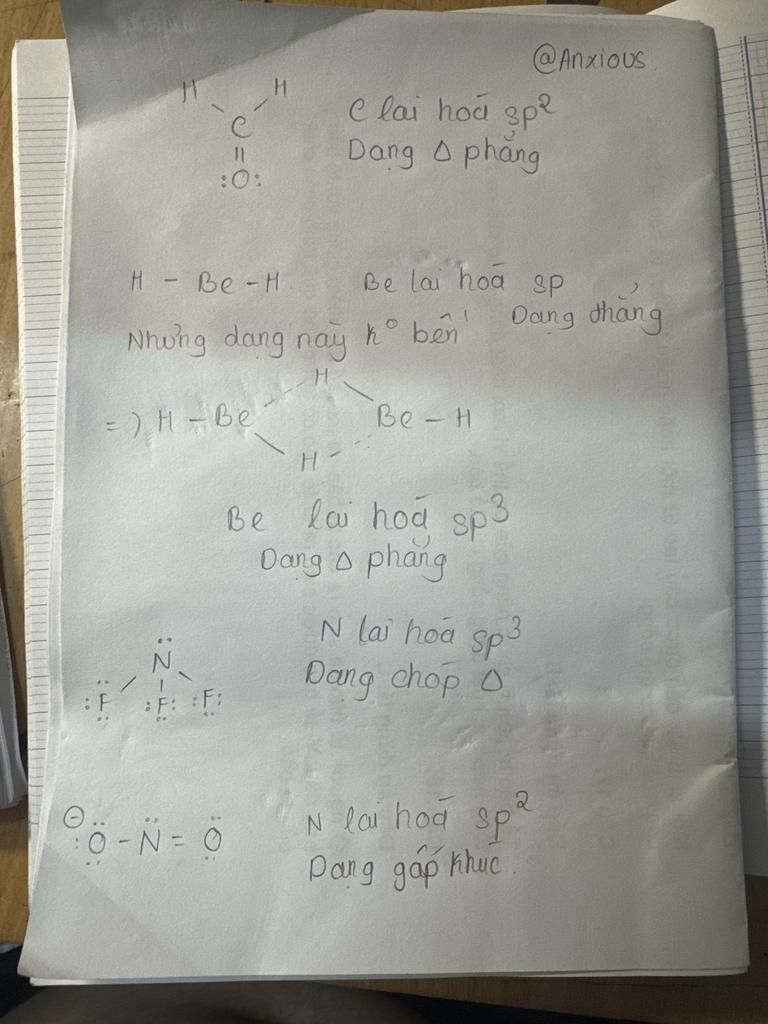 @Anxious
H H
C
||
:O:
C lai hoá sp²
Dạng Δ phẳng
H - Be - H Be lai hoá sp
Dạng thẳng
Nhưng dạng này k° bền
H
=) H - Be Be - H
H
Be lai hoá sp³
Dạng Δ phẳng
N lai hoá sp³
Dạng chóp Δ
N
:F :F: F:
⊖
:O - N = O
N lai hoá sp²
Dạng gấp khúc.